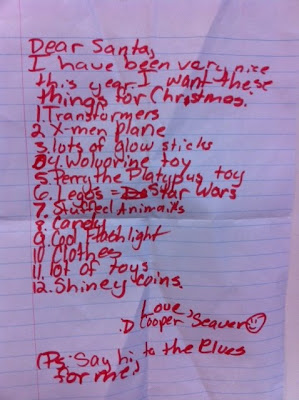 Dear Santa,
I have been very nice
this year. I want these
things for Christmas.
1. Transformers
2. X-men Plane
3. lots of glow sticks
4. Wolvorine toy
5. Perry the Platypus toy
6. Legos = Star Wars
7. Stuffed Animals
8. Candy
9. Cool flashlight
10. Clothes
11. lot of toys
12. Shiney coins.
Love,
D Cooper Seaver
(Ps: Say hi, to the Elves
for me.)